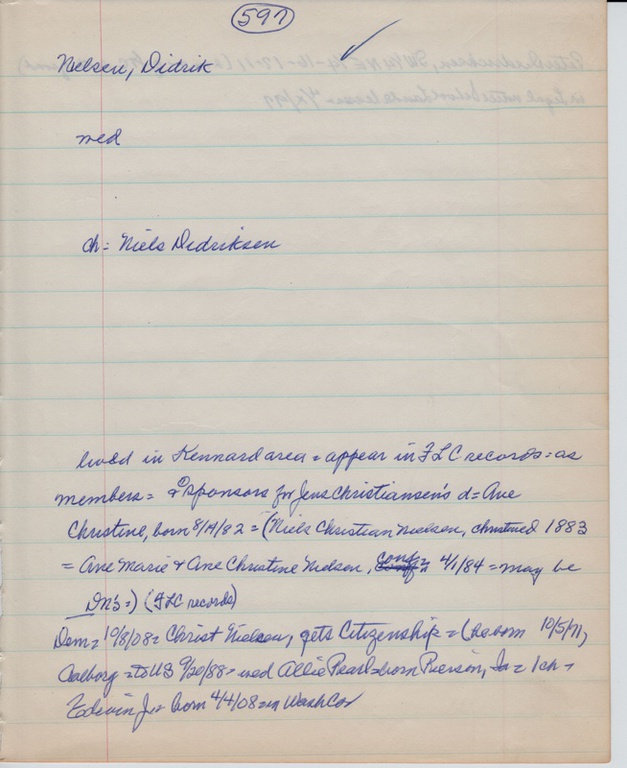 597
Nielsen, Didrik
med
ch= Niels Didriksen
lived in Kennard area = appear in FLC records = as
members = & sponsors for Jens Christiansen's d= Ane
Christine, born 8/14/82 = (Niels Christian Nielsen, christined 1883
= Ane Marie & Ane Christine Nielsen, conf= 4/1/84 = may be
DN's =) (FLC records)
Dem= 10/8/08= Christ Nielsen, gets Citizenship = (he born 10/5/71,
Aalborg = to US 9/20/88 = wed Allie Pearl = born Pierson, Ia = 1 ch =
Edwin J = born 4/4/08 = in Wash Co)